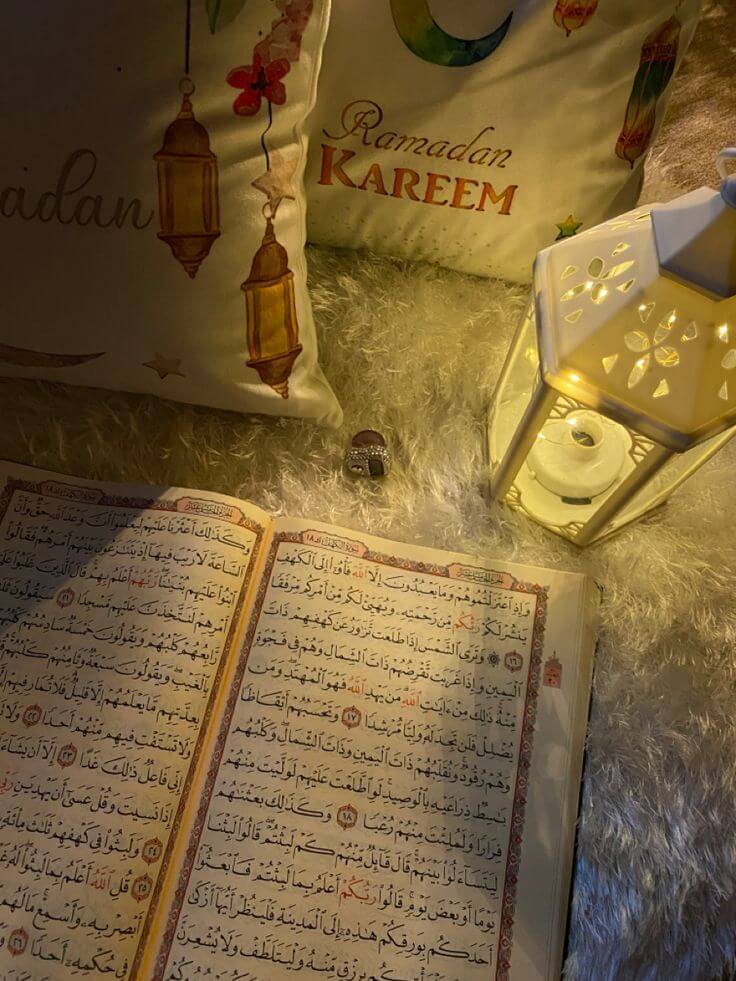 adan
Ramadan
KAREEM
سورة الكهف ١٨
الجزء الخامس عشر
وَإِذِ ٱعْتَزَلْتُمُوهُمْ وَمَا يَعْبُدُونَ إِلَّا ٱللَّهَ فَأْوُۥٓا۟ إِلَى ٱلْكَهْفِ
يَنشُرْ لَكُمْ رَبُّكُم مِّن رَّحْمَتِهِۦ وَيُهَيِّئْ لَكُم مِّنْ أَمْرِكُم مِّرْفَقًا
١٦ ۞ وَتَرَى ٱلشَّمْسَ إِذَا طَلَعَت تَّزَٰوَرُ عَن كَهْفِهِمْ ذَاتَ
ٱلْيَمِينِ وَإِذَا غَرَبَت تَّقْرِضُهُمْ ذَاتَ ٱلشِّمَالِ وَهُمْ فِى فَجْوَةٍ
مِّنْهُ ۚ ذَٰلِكَ مِنْ ءَايَٰتِ ٱللَّهِ ۗ مَن يَهْدِ ٱللَّهُ فَهُوَ ٱلْمُهْتَدِ ۖ وَمَن
يُضْلِلْ فَلَن تَجِدَ لَهُۥ وَلِيًّا مُّرْشِدًا ١٧ وَتَحْسَبُهُمْ أَيْقَاظًا
وَهُمْ رُقُودٌ ۚ وَنُقَلِّبُهُمْ ذَاتَ ٱلْيَمِينِ وَذَاتَ ٱلشِّمَالِ ۖ وَكَلْبُهُم
بَٰسِطٌ ذِرَاعَيْهِ بِٱلْوَصِيدِ ۚ لَوِ ٱطَّلَعْتَ عَلَيْهِمْ لَوَلَّيْتَ مِنْهُمْ
فِرَارًا وَلَمُلِئْتَ مِنْهُمْ رُعْبًا ١٨ وَكَذَٰلِكَ بَعَثْنَٰهُمْ
لِيَتَسَآءَلُوا۟ بَيْنَهُمْ ۚ قَالَ قَآئِلٌ مِّنْهُمْ كَمْ لَبِثْتُمْ ۖ قَالُوا۟ لَبِثْنَا
يَوْمًا أَوْ بَعْضَ يَوْمٍ ۚ قَالُوا۟ رَبُّكُمْ أَعْلَمُ بِمَا لَبِثْتُمْ فَٱبْعَثُوٓا۟
أَحَدَكُم بِوَرِقِكُمْ هَٰذِهِۦٓ إِلَى ٱلْمَدِينَةِ فَلْيَنظُرْ أَيُّهَآ أَزْكَىٰ
بِرِزْقٍ مِّنْهُ وَلْيَتَلَطَّفْ وَلَا يُشْعِرَنَّ
سورة الكهف ١٨
الجزء الخامس عشر
وَكَذَٰلِكَ أَعْثَرْنَا عَلَيْهِمْ لِيَعْلَمُوٓا۟ أَنَّ وَعْدَ ٱللَّهِ حَقٌّ وَأَنَّ
ٱلسَّاعَةَ لَا رَيْبَ فِيهَآ إِذْ يَتَنَٰزَعُونَ بَيْنَهُمْ أَمْرَهُمْ ۖ فَقَالُوا۟
ٱبْنُوا۟ عَلَيْهِم بُنْيَٰنًا ۖ رَّبُّهُمْ أَعْلَمُ بِهِمْ ۚ قَالَ ٱلَّذِينَ غَلَبُوا۟ عَلَىٰٓ
أَمْرِهِمْ لَنَتَّخِذَنَّ عَلَيْهِم مَّسْجِدًا ٢١ سَيَقُولُونَ
رَّابِعُهُمْ كَلْبُهُمْ وَيَقُولُونَ خَمْسَةٌ سَادِسُهُمْ كَلْبُهُمْ
بِٱلْغَيْبِ ۖ وَيَقُولُونَ سَبْعَةٌ وَثَامِنُهُمْ كَلْبُهُمْ
بِعِدَّتِهِم مَّا يَعْلَمُهُمْ إِلَّا قَلِيلٌ ۗ فَلَا تُمَارِ فِيهِمْ
وَلَا تَسْتَفْتِ فِيهِم مِّنْهُمْ أَحَدًا ٢٢
إِنِّى فَاعِلٌ ذَٰلِكَ غَدًا ٢٣ إِلَّآ أَن يَشَآءَ
إِذَا نَسِيتَ وَقُلْ عَسَىٰٓ أَن يَهْدِيَنِ رَبِّى
٢٤ وَلَبِثُوا۟ فِى كَهْفِهِمْ ثَلَٰثَ مِا۟ئَةٍ
٢٥ قُلِ ٱللَّهُ أَعْلَمُ بِمَا لَبِثُوا۟ ۖ لَهُۥ
أَبْصِرْ بِهِۦ وَأَسْمِعْ ۚ مَا لَهُم
فِى حُكْمِهِۦٓ أَحَدًا ٢٦